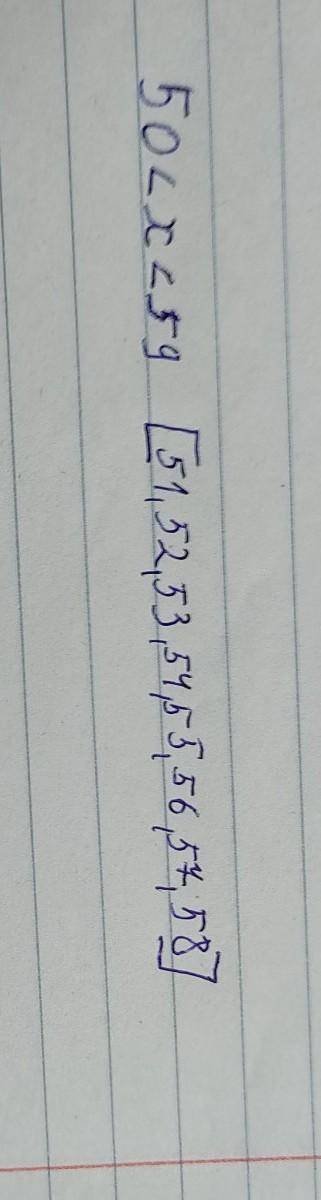 50 < x < 59 [51, 52, 53, 54, 55, 56, 57, 58]